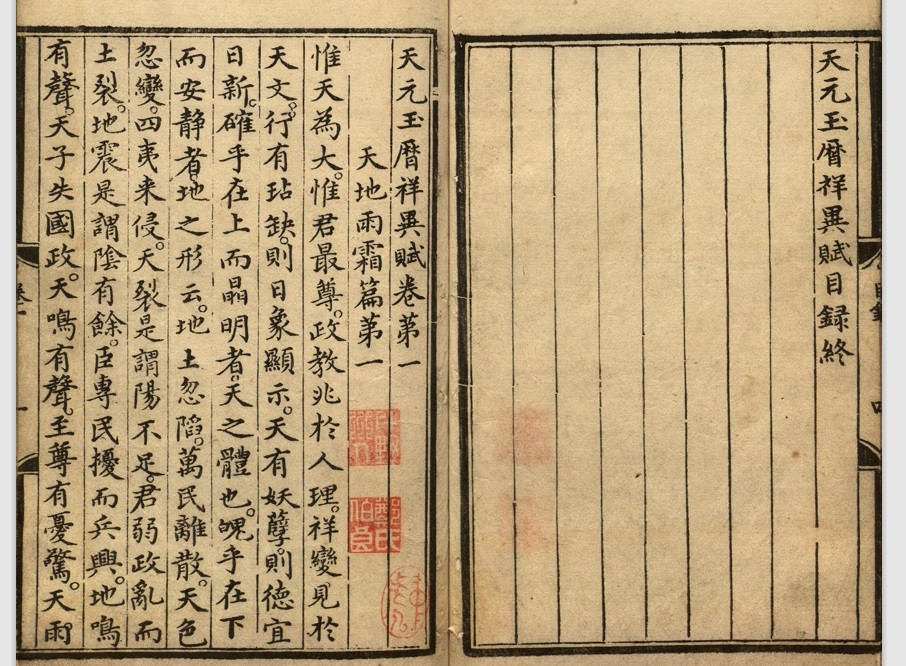 天元玉曆祥異賦目録終
天元玉曆祥異賦卷第一
天地雨霜篇第一
惟天為大。惟君最尊。政教兆於人理。祥變見於
天文。行有玷缺。則日象顯示。天有妖孽。則德宜
日新。確乎在上而晶明者。天之體也。魄乎在下
而安静者。地之形云。地土忽䧟。萬民離散。天色
忽變。四夷来侵。天裂是謂陽不足。君弱政亂而
土裂。地震是謂陰有餘。臣專民擾而兵興。地鳴
有聲。天子失國政。天鳴有聲。至尊有憂驚。天雨
鄭氏